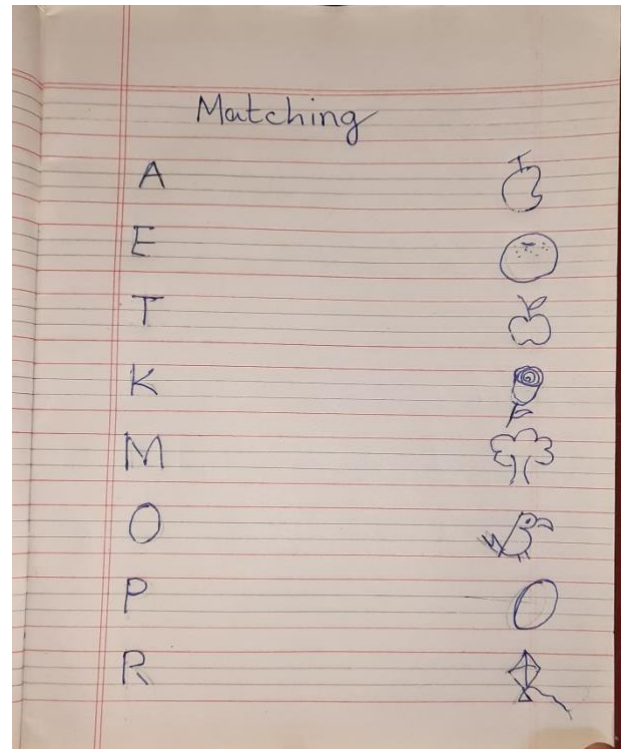 Matching
A
E
T
K
M
O
P
R